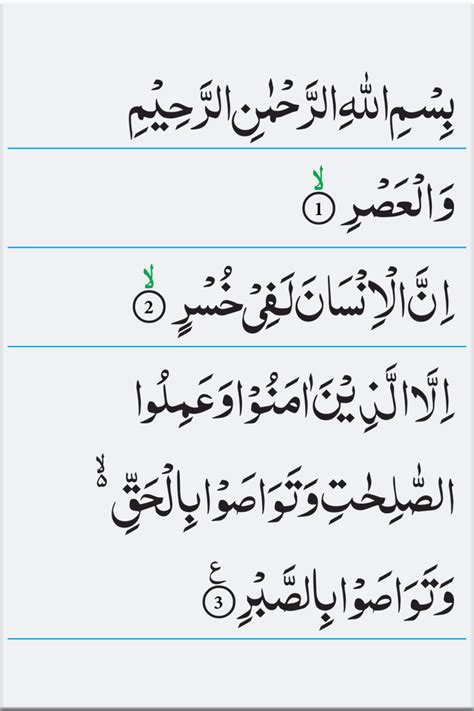 بِسْمِ اللّٰهِ الرَّحْمٰنِ الرَّحِيْمِ
وَالْعَصْرِ ۙ ①
اِنَّ الْاِنْسَانَ لَفِيْ خُسْرٍ ۙ ②
اِلَّا الَّذِيْنَ اٰمَنُوْا وَعَمِلُوا
الصّٰلِحٰتِ وَتَوَاصَوْا بِالْحَقِّ ۵ۙ
وَتَوَاصَوْا بِالصَّبْرِ ③ ع